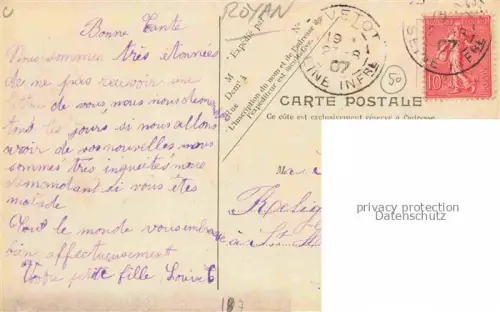 Bonne Tante
Nous sommes très étonnées
de ne pas recevoir une
de vous, nous nous
tout les jours si nous allons
avoir de vos nouvelles nous
sommes très inquiètes nous
demandant si vous êtes
malade
Tout le monde vous embrasse
bien affectueusement
Votre petite fille, Louise
ROYAN
Expédié par
M
Dem't
Rue
N°
L'inscription du nom et de l'adresse de
l'expéditeur est facultative.
YVETOT
07
SEINE INFRE
07
SEINE INFRE
10
50
CARTE POSTALE
Ce côté est exclusivement réservé à l'adresse
privacy protection
Datenschutz
à St
187